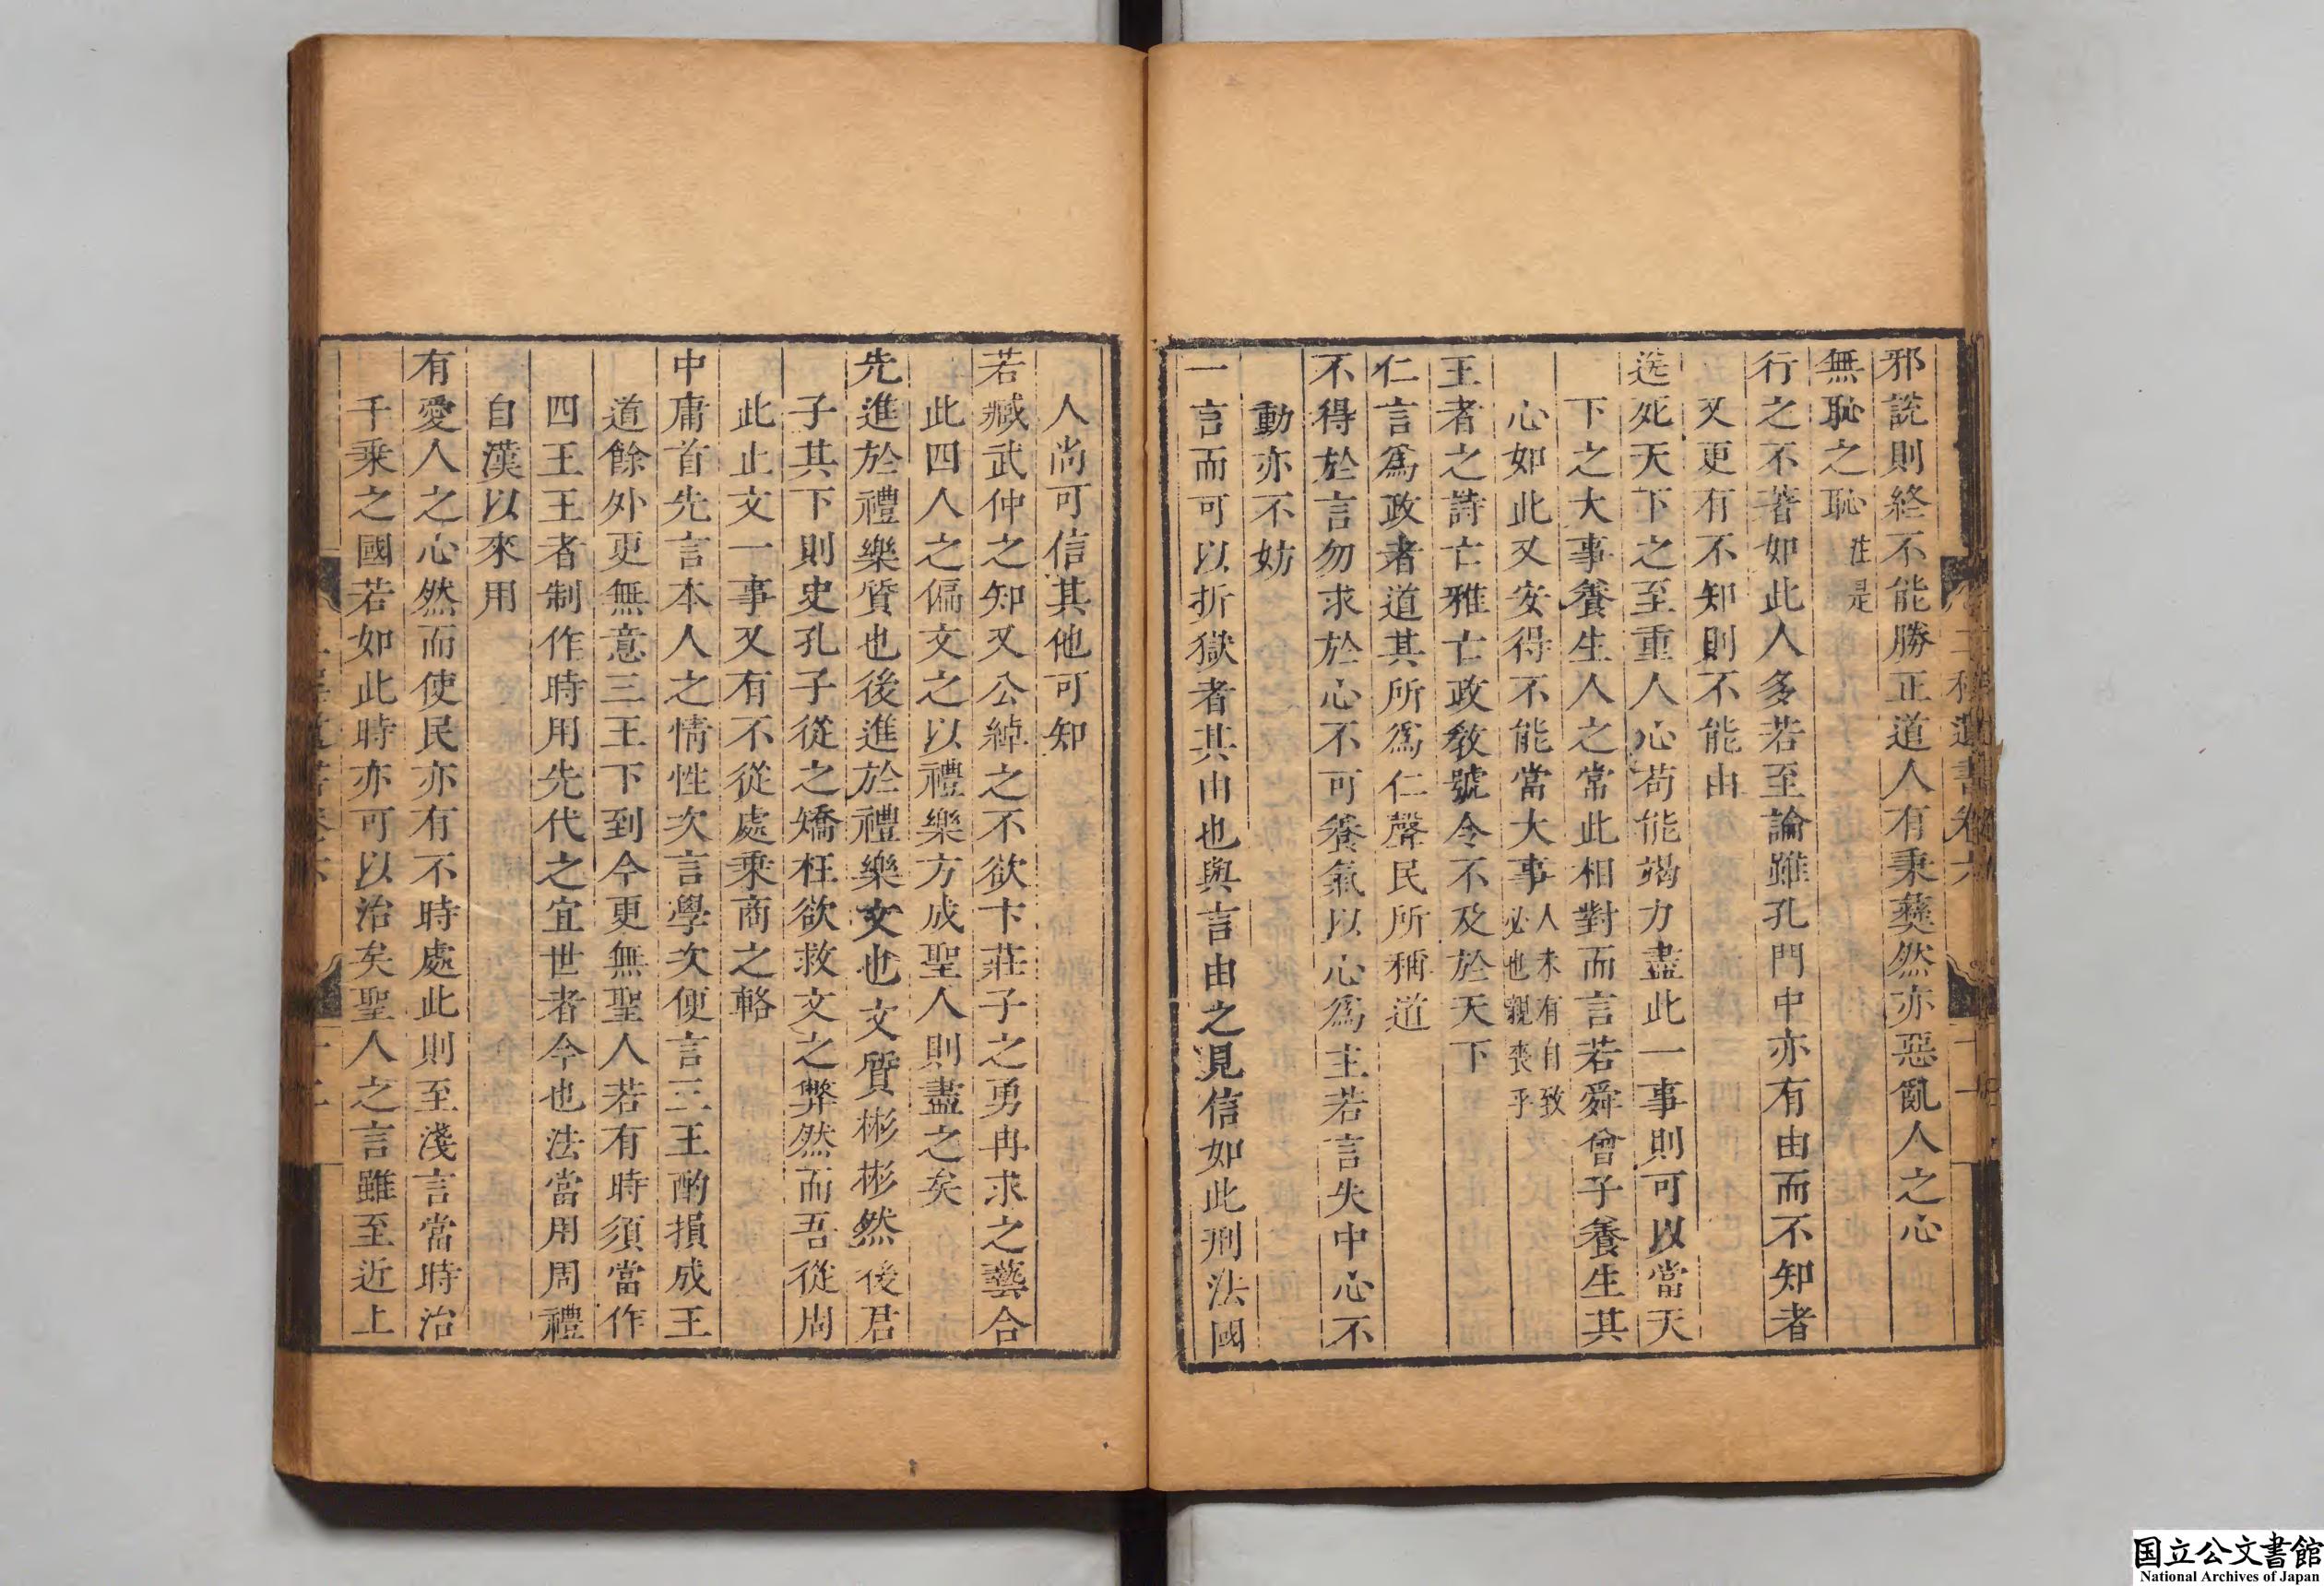 邪說則終不能勝正道人有秉彝然亦惡亂人之心
無恥之恥注是
行之不著如此人多若至論雖孔門中亦有由而不知者
又更有不知則不能由
送死天下之至重人心苟能竭力盡此一事則可以當天
下之大事養生人之常此相對而言若舜曾子養生其
心如此又安得不能當大事人未有自致
必也親喪乎
王者之詩亡雅亡政教號令不及於天下
仁言爲政者道其所爲仁聲民所稱道
不得於言勿求於心不可養氣以心爲主若言失中心不
動亦不妨
一言而可以折獄者其由也與言由之見信如此刑法國
人尚可信其他可知
若臧武仲之知又公綽之不欲卞莊子之勇冉求之藝合
此四人之偏文之以禮樂方成聖人則盡之矣
先進於禮樂質也後進於禮樂文也文質彬彬然後君
子其下則史孔子從之矯枉欲救文之弊然而吾從周
此止文一事又有不從處乘商之輅
中庸首先言本人之情性次言學次便言三王酌損成王
道餘外更無意三王下到今更無聖人若有時須當作
四王王者制作時用先代之宜世者今也法當用周禮
自漢以來用
有愛人之心然而使民亦有不時處此則至淺言當時治
千乘之國若如此時亦可以治矣聖人之言雖至近上
国立公文書館
National Archives of Japan